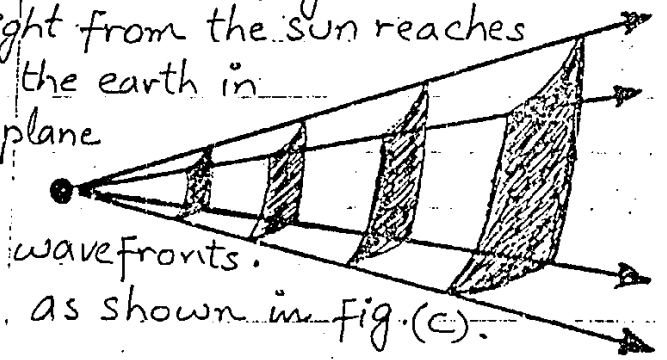 ght from the sun reaches
the earth in
plane
wavefronts.
as shown in fig.(c).